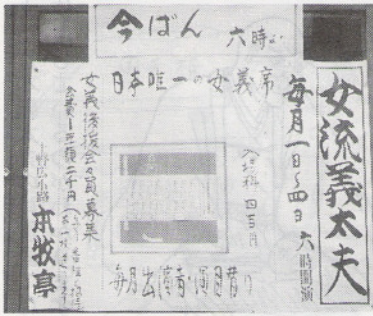 今ばん 六時より
女流義太夫
毎月一日〜四日 六時開演
日本唯一の女義席
入場料 四百円
女義後援会々員募集
会費
二千円
上野広小路
本牧亭
毎月出演者・演目替り